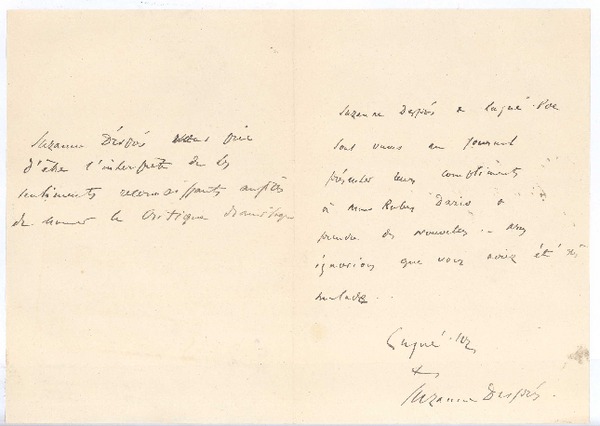 Suzanne Després vous prie
d'être l'interprète de ses
sentiments reconnaissants auprès
de le Critique dramatique
Suzanne Després & Lugné-Poe
sont venus au Journal
présenter leurs compliments
à Mons Ruben Dario &
prendre des nouvelles. - nous
ignorions que vous aviez été si
malade.
Lugné-Poe
+
Suzanne Després.